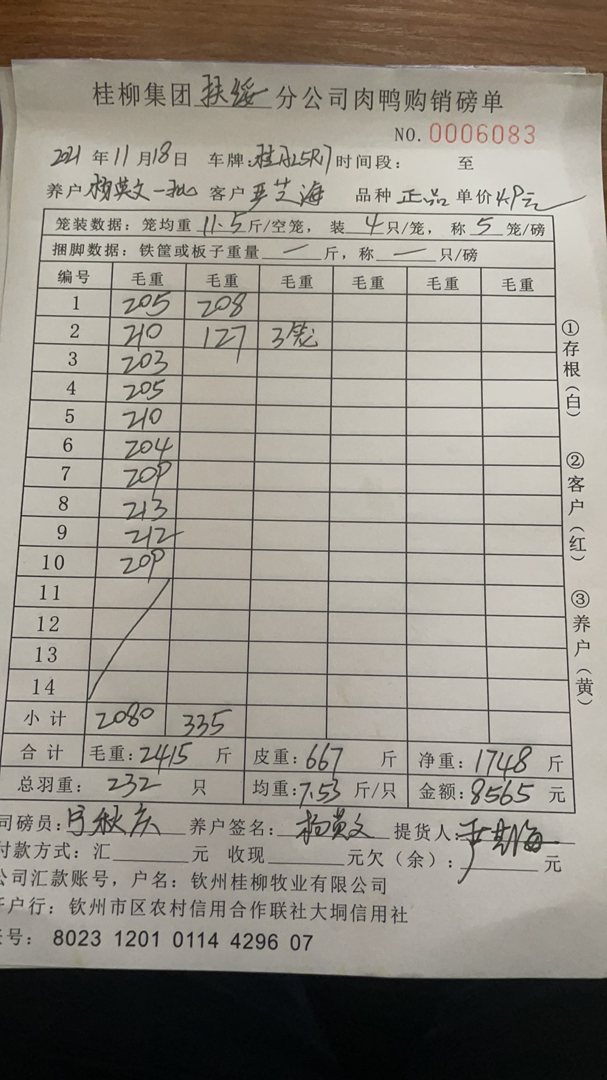 桂柳集团扶绥分公司肉鸭购销磅单
NO.0006083
2021年11月18日 车牌: 时间段: 至
养户杨英文一批 客户严芝海 品种正品 单价4.9元
笼装数据:笼均重11.5斤/空笼,装4只/笼,称5笼/磅
捆脚数据:铁筐或板子重量一斤,称一只/磅
编号 毛重 毛重 毛重 毛重 毛重 毛重
1 205 208
2 210 127 3笼
3 203
4 205
5 210
6 204
7 209
8 213
9 212
10 209
11
12
13
14
小计 2080 335
合计 毛重:2415斤 皮重:667斤 净重:1748斤
总羽重:232只 均重:7.53斤/只 金额:8565元
司磅员:宁秋庆 养户签名:杨英文 提货人:
付款方式:汇 元 收现 元欠(余): 元
公司汇款账号,户名:钦州桂柳牧业有限公司
开户行:钦州市区农村信用合作联社大垌信用社
号: 8023 1201 0114 4296 07
①存根(白) ②客户(红) ③养户(黄)